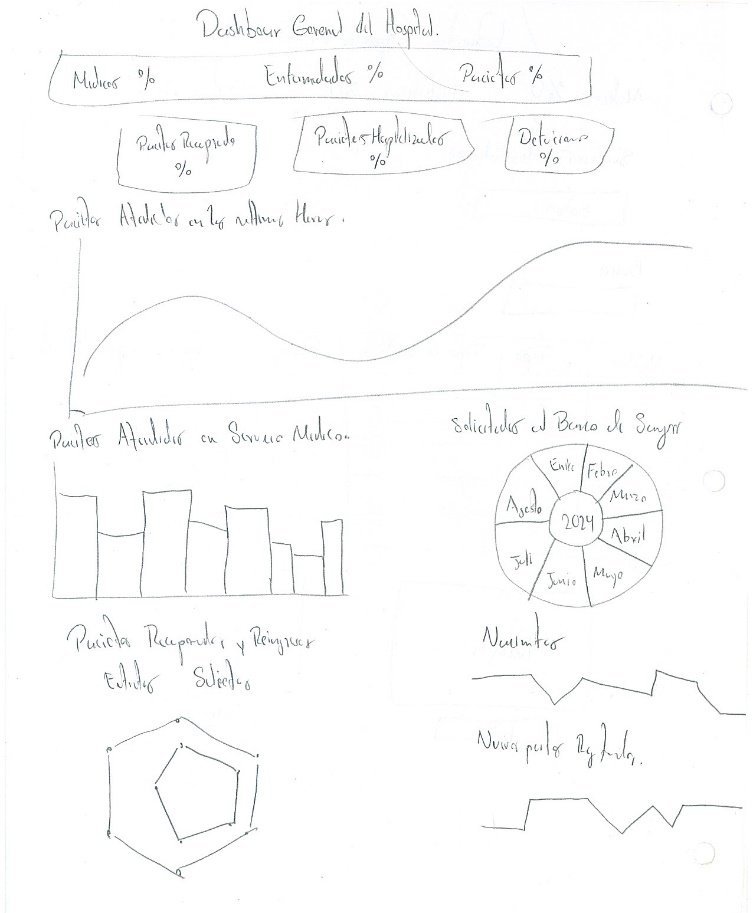 Dashboar General del Hospital.
Medicos %
Enfermedades %
Pacientes %
Pacientes Recuperado
%
Pacientes Hospitalizados
%
%
Pacientes Atendidos en las ultimas Horas.
Pacientes Atendidos en Servicio Medico.
Solicitudes al Banco de Sangre
Enero
Febre
Marzo
Abril
Mayo
Junio
Juli
Agosto
2024
Pacientes Recuperados y Reingresos
Nacimientos